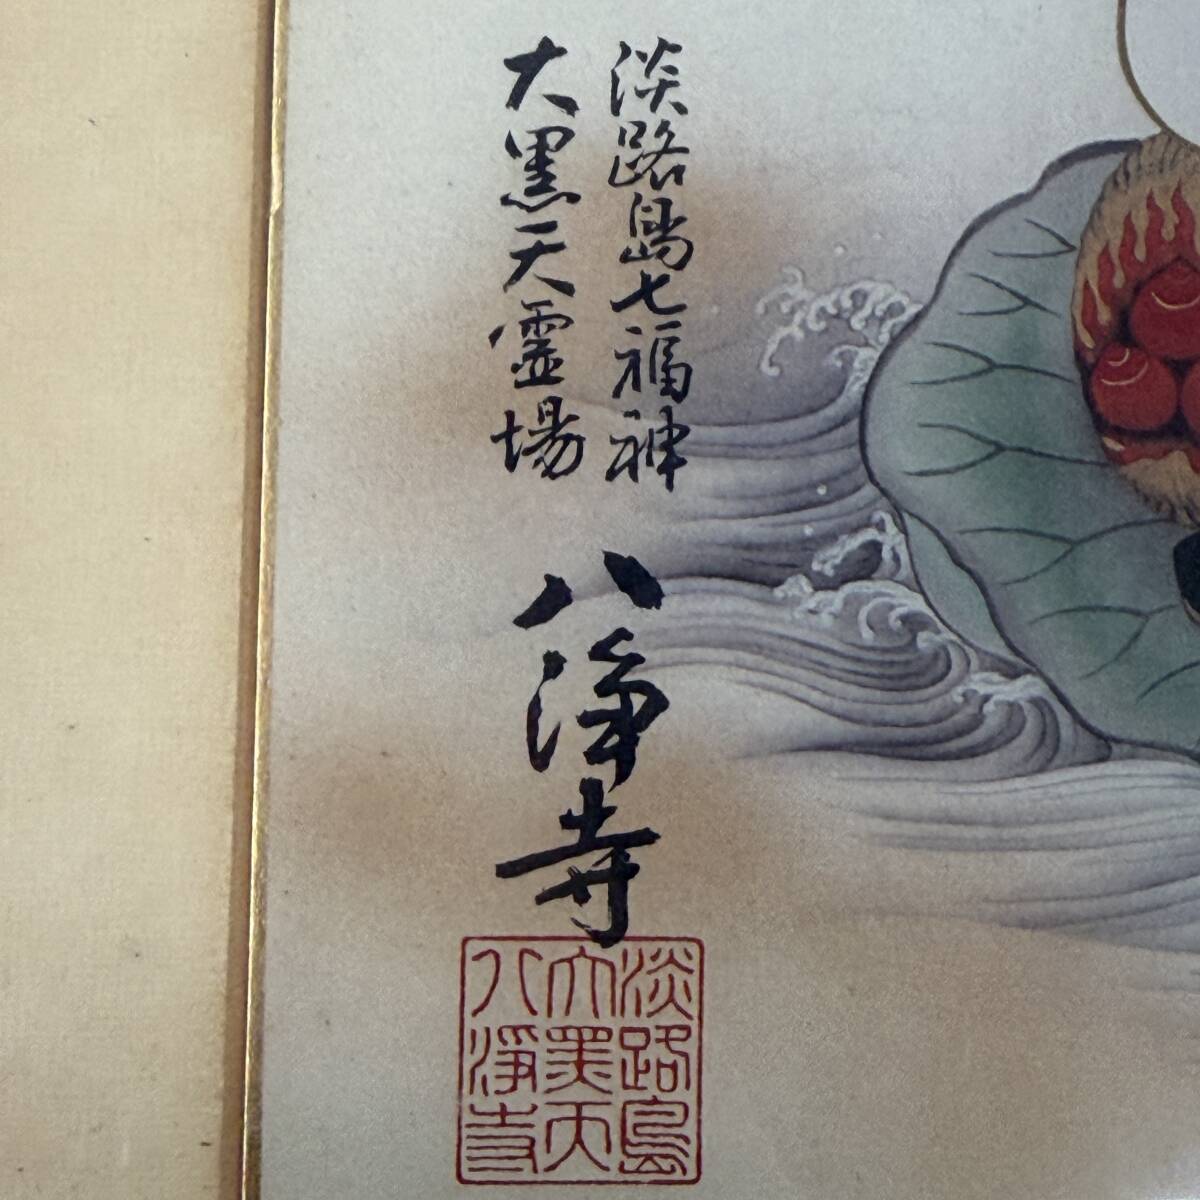 淡路島七福神
大黒天霊場
八浄寺
淡路島
大黒天
八浄寺